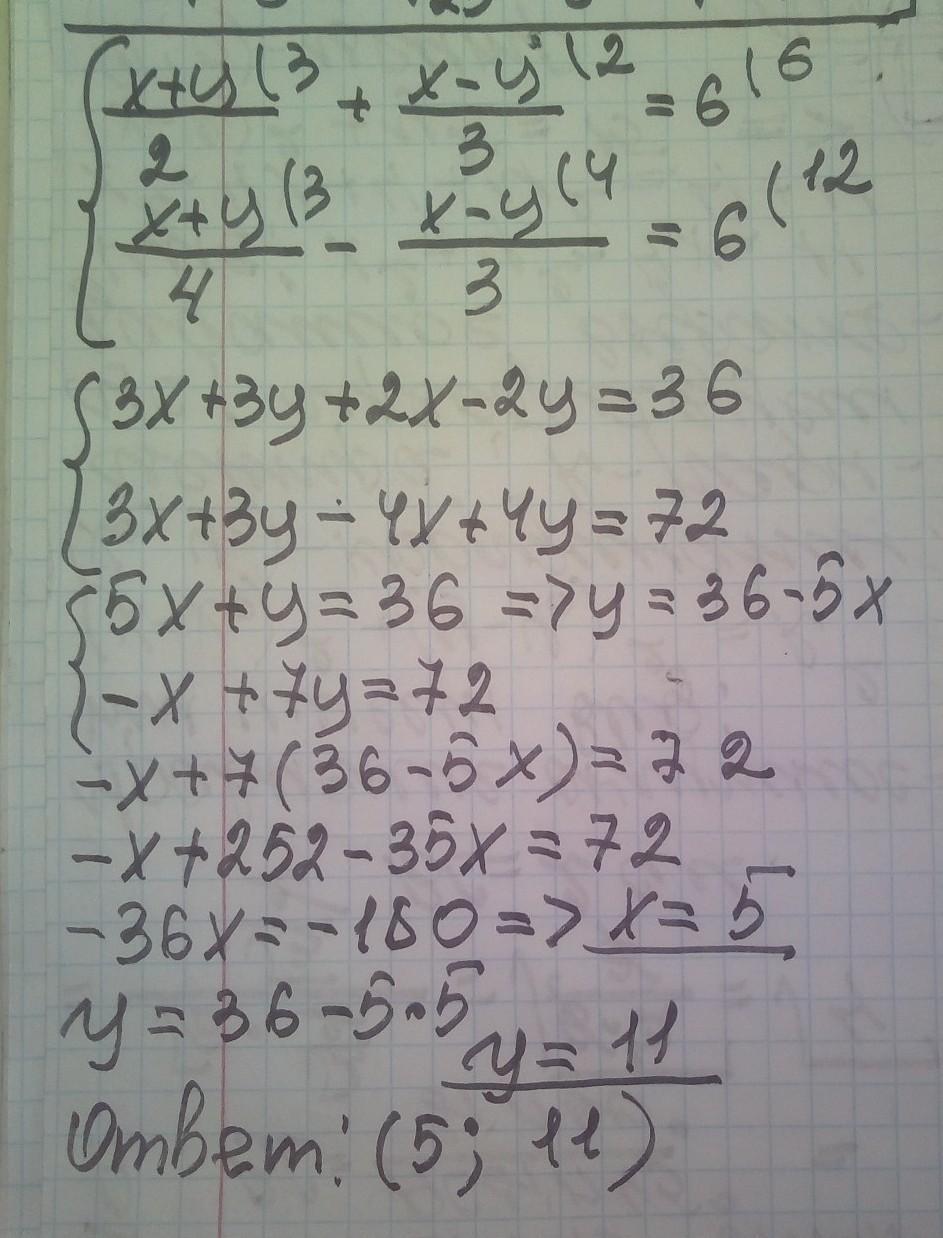 x+y(3 + x-y(2 = 6(6
2 3
x+y(3 - x-y(4 = 6(12
4 3
3x+3y+2x-2y=36
3x+3y-4x+4y=72
5x+y=36 => y=36-5x
-x+7y=72
-x+7(36-5x)=72
-x+252-35x=72
-36x=-180=> x=5
y=36-5·5
y=11
Ответ: (5; 11)